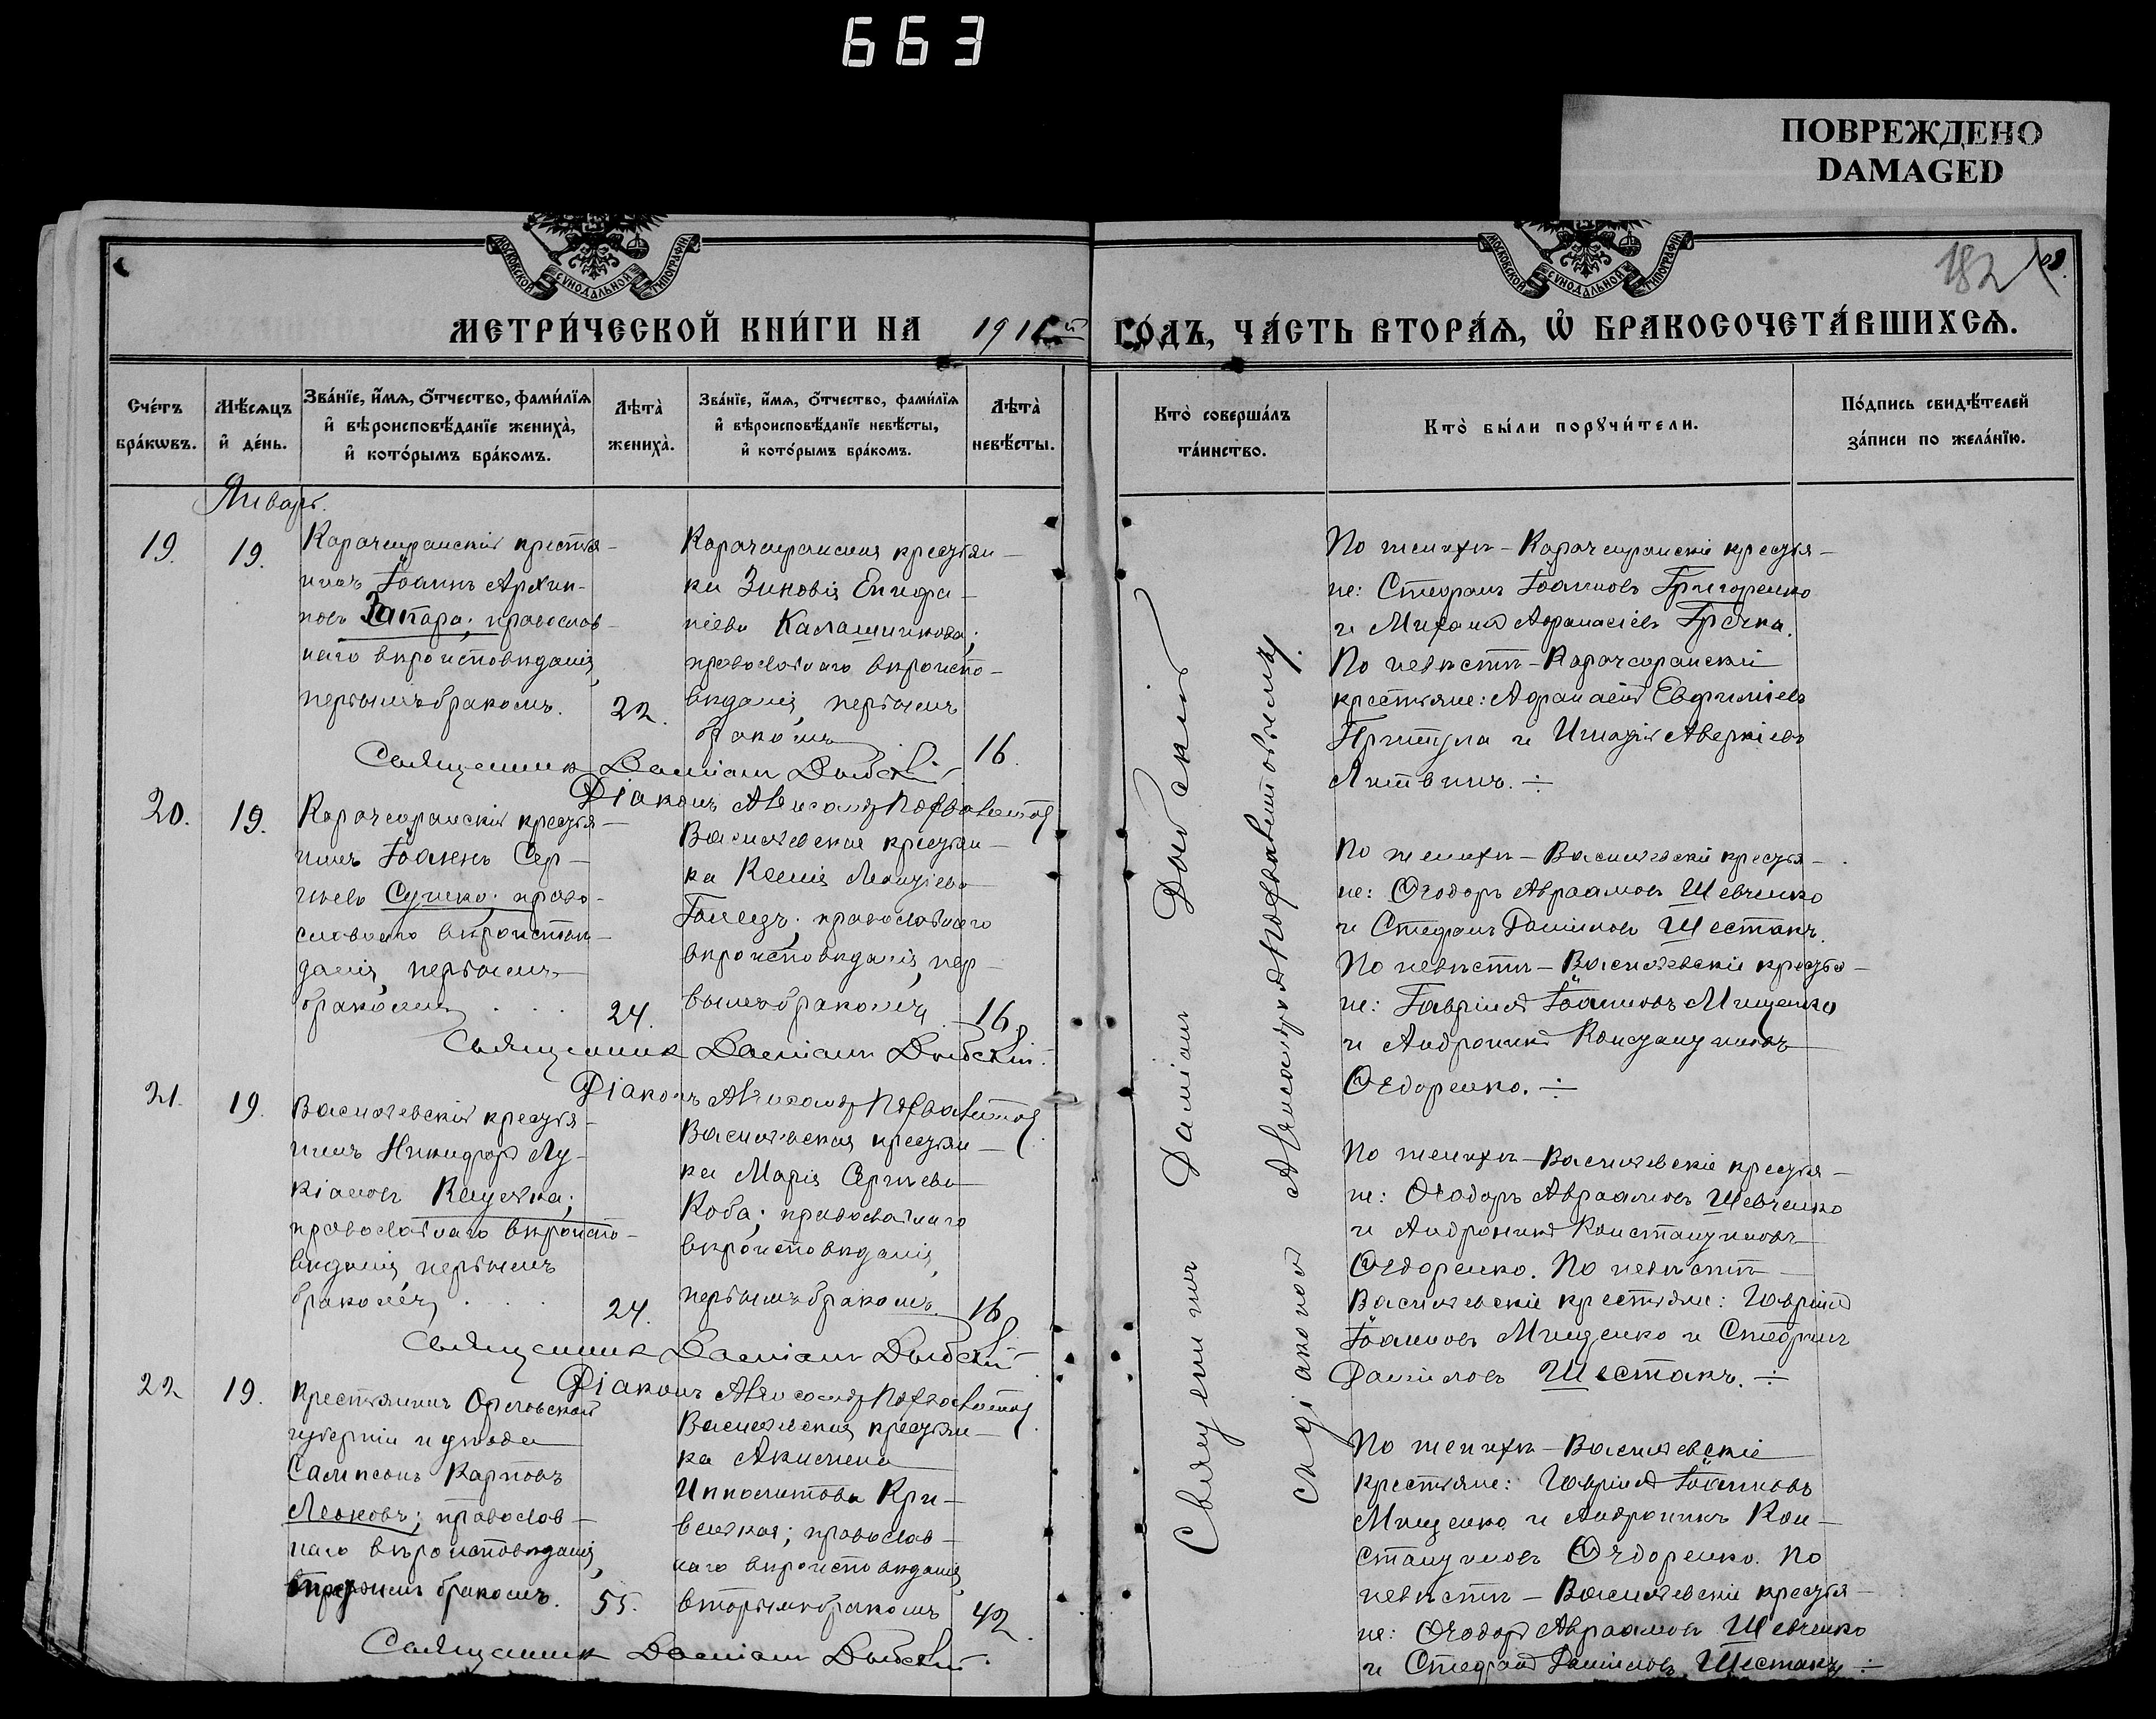 663
ПОВРЕЖДЕНО
DAMAGED
МОСКОВСКОЙ СѴНОДАЛЬНОЙ ТИПОГРАФІИ
МОСКОВСКОЙ СѴНОДАЛЬНОЙ ТИПОГРАФІИ
182
МЕТРИ́ЧЕСКОЙ КНИ́ГИ НА 191 й ГО́ДЪ, ЧА́СТЬ ВТОРА́Ѧ, Ѡ҆ БРАКОСОЧЕТА́ВШИХСѦ.
Сче́тъ бра́кѡвъ.
Мѣ́сѧцъ и҆ де́нь.
Зва́нїе, и҆́мѧ, ѻ҆́тчество, фами́лїѧ
и҆ вѣроисповѣ́данїе жениха̀,
и҆ кото́рымъ бра́комъ.
Лѣта̀ жениха̀.
Зва́нїе, и҆́мѧ, ѻ҆́тчество, фами́лїѧ
и҆ вѣроисповѣ́данїе невѣ́сты,
и҆ кото́рымъ бра́комъ.
Лѣта̀ невѣ́сты.
Кто̀ соверша́лъ та́инство.
Кто̀ бы́ли порꙋчи́тели.
По́дпись свидѣ́телей за́писи по жела́нїю.
Январь.
19.
19.
крестья-
нинъ Іоаннъ Архип-
повъ Запара; православ-
наго вѣроисповѣданія,
первымъ бракомъ.
22.
крестьян-
ка Зиновія Епифа-
ніева Калашникова;
православнаго вѣроиспо-
вѣданія, первымъ
бракомъ
16.
По женихѣ – крестья-
не: Стефанъ Іоанновъ Григоренко
и Михаилъ Афанасіевъ Гречка.
По невѣстѣ –
крестьяне: Афанасій Евфиміевъ
Притула и Игнатій Аверкіевъ
Литвинъ. ÷
Священникъ Даміанъ
Діаконъ Александръ
20.
19.
крестья-
нинъ Іоаннъ Сер-
гіевъ Сушко; право-
славнаго вѣроисповѣ-
данія, первымъ
бракомъ . . .
24.
Васильевская крестьян-
ка Ксенія Леонтіева
православнаго
вѣроисповѣданія, пер-
вымъ бракомъ.
16.
По женихѣ – Васильевскіе крестья-
не: Ѳеодоръ Авраамовъ Шевченко
и Стефанъ Даниловъ Шестакъ.
По невѣстѣ – Васильевскіе крестья-
не: Гавріилъ Іоанновъ Мищенко
и Андроникъ Константиновъ
Ѳедоренко. ÷
Священникъ Даміанъ
Діаконъ Александръ
21.
19.
Васильевскій крестья-
нинъ Никифоръ Лу-
кіановъ
православнаго вѣроиспо-
вѣданія, первымъ
бракомъ . . .
24.
Васильевская крестьян-
ка Марія Сергіева
Коба; православнаго
вѣроисповѣданія,
первымъ бракомъ.
16
По женихѣ – Васильевскіе крестья-
не: Ѳеодоръ Авраамовъ Шевченко
и Андроникъ Константиновъ
Ѳедоренко. По невѣстѣ –
Васильевскіе крестьяне: Гавріилъ
Іоанновъ Мищенко и Стефанъ
Даниловъ Шестакъ. ÷
Священникъ Даміанъ
Діаконъ Александръ
22
19.
Крестьянинъ Орловской
губерніи и уѣзда
Сампсонъ Карповъ
Леоновъ; православ-
наго вѣроисповѣданія,
бракомъ.
55.
Васильевская крестьян-
ка Акилина
Ипполитова Кри-
православ-
наго вѣроисповѣданія,
вторымъ бракомъ
42.
По женихѣ – Васильевскіе
крестьяне: Гавріилъ Іоанновъ
Мищенко и Андроникъ Кон-
стантиновъ Ѳедоренко. По
невѣстѣ – Васильевскіе крестья-
не: Ѳеодоръ Авраамовъ Шевченко
и Стефанъ Даниловъ Шестакъ ÷
Священникъ Даміанъ
Священникъ Даміанъ
съ діакономъ Александромъ